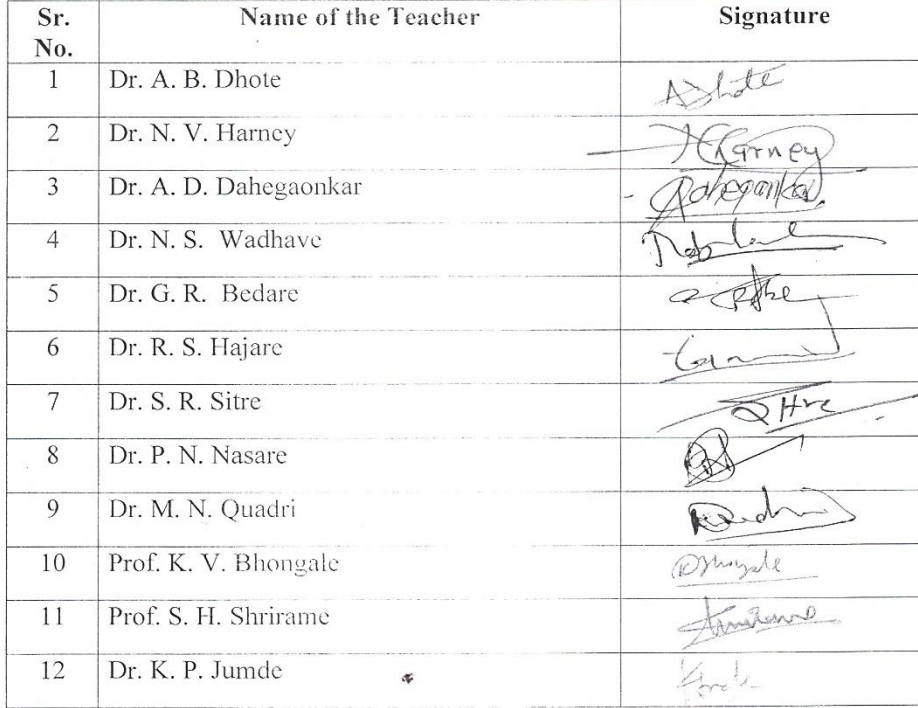 Sr. No. Name of the Teacher Signature
1 Dr. A. B. Dhote ADhote
2 Dr. N. V. Harney Harney
3 Dr. A. D. Dahegaonkar Dahegaonkar
4 Dr. N. S. Wadhave
5 Dr. G. R. Bedare
6 Dr. R. S. Hajare
7 Dr. S. R. Sitre
8 Dr. P. N. Nasare
9 Dr. M. N. Quadri Quadri
10 Prof. K. V. Bhongale
11 Prof. S. H. Shrirame
12 Dr. K. P. Jumde